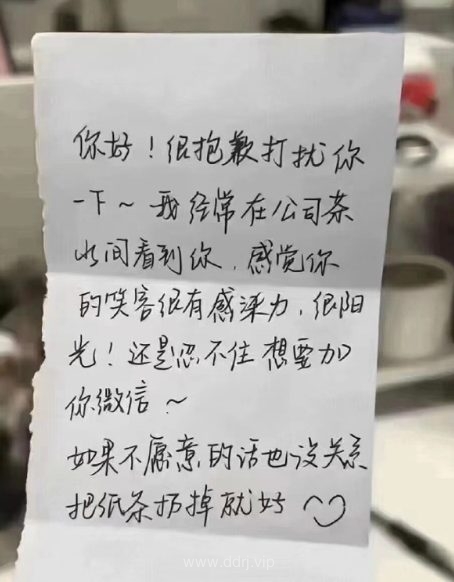 你好！很抱歉打扰你
一下～ 我经常在公司茶
水间看到你，感觉你
的笑容很有感染力，很阳
光！还是忍不住想要加
你微信～
如果不愿意的话也没关系
把纸条扔掉就好
www.ddrj.vip